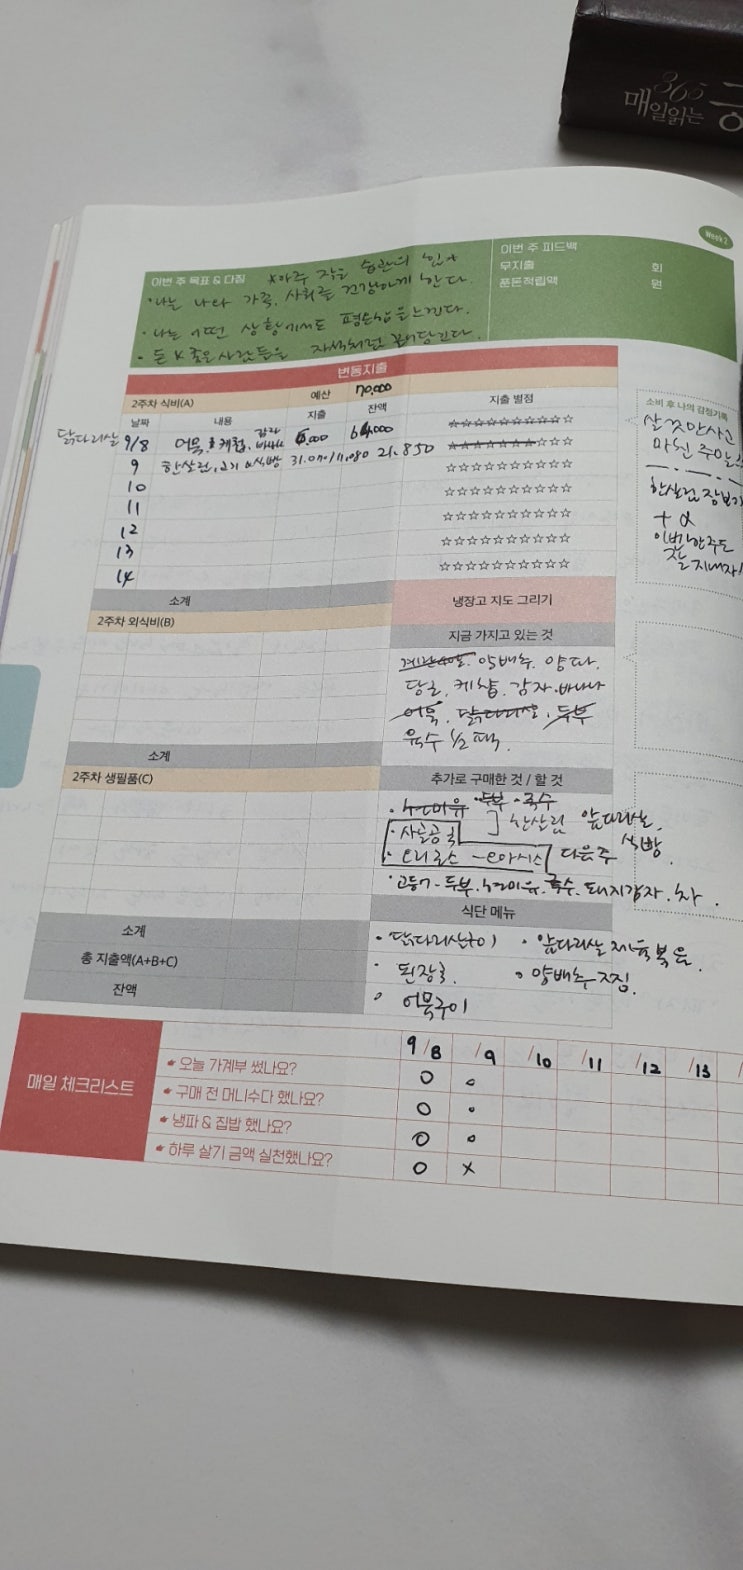 365
매일읽는
Week 2
이번 주 목표 & 다짐 *아주 작은 습관의 힘*
· 나는 나와 가족, 사회를 건강하게 한다.
· 나는 어떤 상황에서도 평온함을 느낀다.
· 돈 & 좋은 사람들을 자석처럼 끌어당긴다.
이번 주 피드백
무지출 회
푼돈적립액 원
변동지출
2주차 식비(A) 예산 70,000
날짜 내용 지출 잔액 지출 별점
닭다리살 9/8 어묵, 케첩, 감자 바나나 6,000 64,000 ☆☆☆☆☆☆☆☆☆☆
9 한살림, 고기 & 식빵 31.070/11,080 21.850 ☆☆☆☆☆☆☆☆☆☆
10 ☆☆☆☆☆☆☆☆☆☆
11 ☆☆☆☆☆☆☆☆☆☆
12 ☆☆☆☆☆☆☆☆☆☆
13 ☆☆☆☆☆☆☆☆☆☆
14 ☆☆☆☆☆☆☆☆☆☆
소계
소비 후 나의 감정기록
살 것만 사긴
마친 주말
한살림 장보기
+ α
이번 한주도
잘 지내자!
2주차 외식비(B)
소계
냉장고 지도 그리기
지금 가지고 있는 것
양배추. 양파.
당근. 케찹. 감자. 바나나
어묵. 닭다리살. 두부
육수 1/2 팩.
2주차 생필품(C)
소계
총 지출액(A+B+C)
잔액
추가로 구매한 것 / 할 것
· 현미유 · 두부 · 국수
· 사골곰국 ] 한살림 앞다리살, 식빵.
다음주
· 고등어 - 두부. 현미유. 국수. 돼지감자. 차.
식단 메뉴
· 닭다리살구이 · 앞다리살 제육볶음.
· 된장국. · 양배추찜.
· 어묵구이
매일 체크리스트
9/8 /9 /10 /11 /12 /13
오늘 가계부 썼나요? O O
구매 전 머니수다 했나요? O O
냉파 & 집밥 했나요? O O
하루 살기 금액 실천했나요? O X